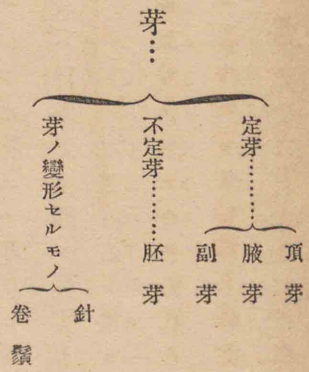 芽…
定芽………
頂芽
腋芽
副芽
不定芽………
胚芽
芽ノ變形セルモノ
針
卷鬚